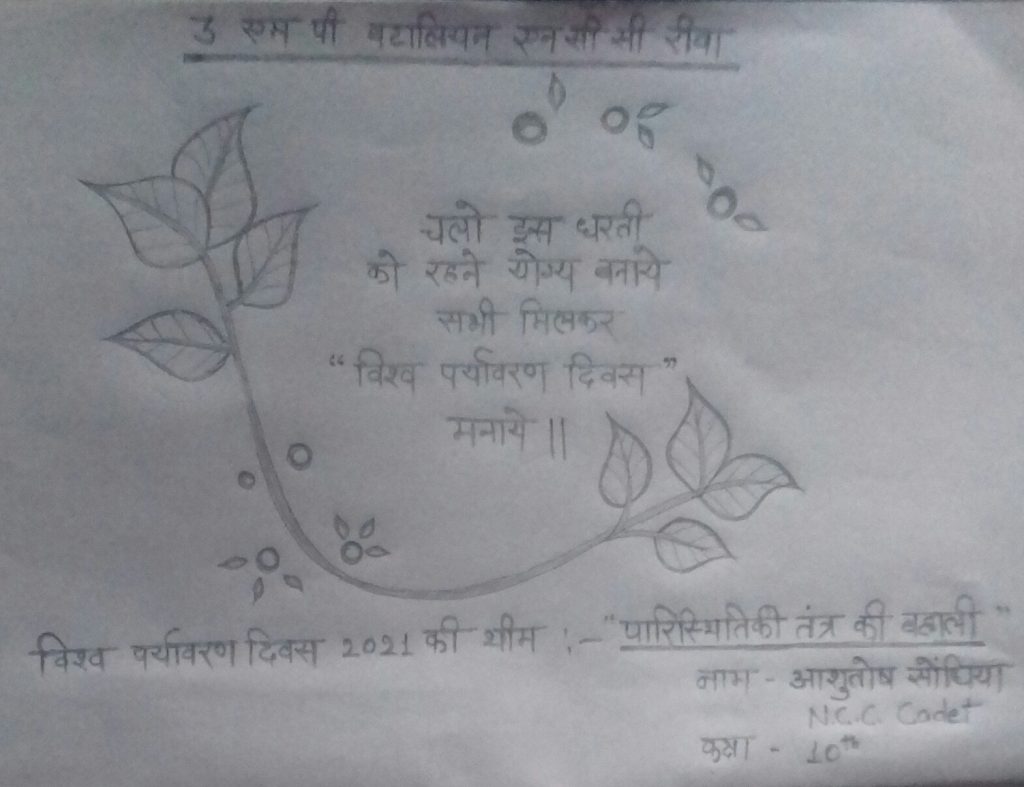 3 एम पी बटालियन एन सी सी रीवा
चलो इस धरती
को रहने योग्य बनाये
सभी मिलकर
“विश्व पर्यावरण दिवस”
मनाये ||
विश्व पर्यावरण दिवस 2021 की थीम :- “पारिस्थितिकी तंत्र की बहाली”
नाम - आशुतोष सोंधिया
N.C.C. Cadet
कक्षा - 10th